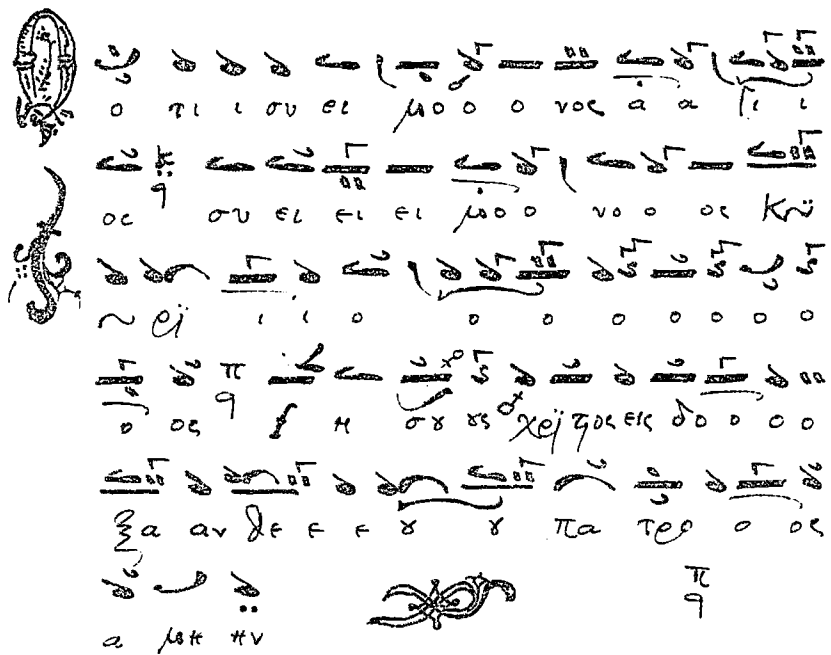 Ο τι ι συ ει μο ο ο νος α α γι ι
ος συ ει ει ει μο ο ο νο ο ος Κυ
υ ρι ι ι ο ο ο ο ο ο ο ο
ο ος Ι η σου ους Χρι τος εις δο ο ο ο
ξα αν Θε ε ε ου ου πα τρο ο ος
α μη ην